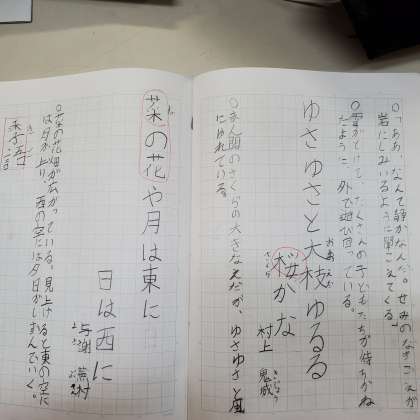 ○「ああ、なんて静かなんだ。せみのなきごえが
岩にしみいるように聞こえてくる。」
○雪がとけて、たくさんの子どもたちが待ちかね
たように、外で遊び回っている。
ゆさゆさと大枝ゆるる
おおえだ
桜かな
さくら
村上 鬼城
きじょう
○まん開のさくらの大きなえだが、ゆさゆさと風
にゆれている。
菜の花や月は東に
な
日は西に
与謝 蕪村
よさ ぶそん
○菜の花畑が広がっている。見上げると東の空に
は月が上り、西の空には夕日がしずんでいく。
季語
きご